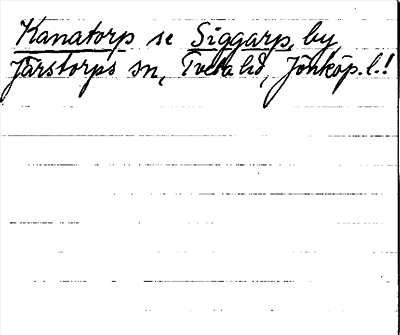 Kanatorp se Siggarp, by
Järstorps sn, Tveta hd, Jönköp. l.!